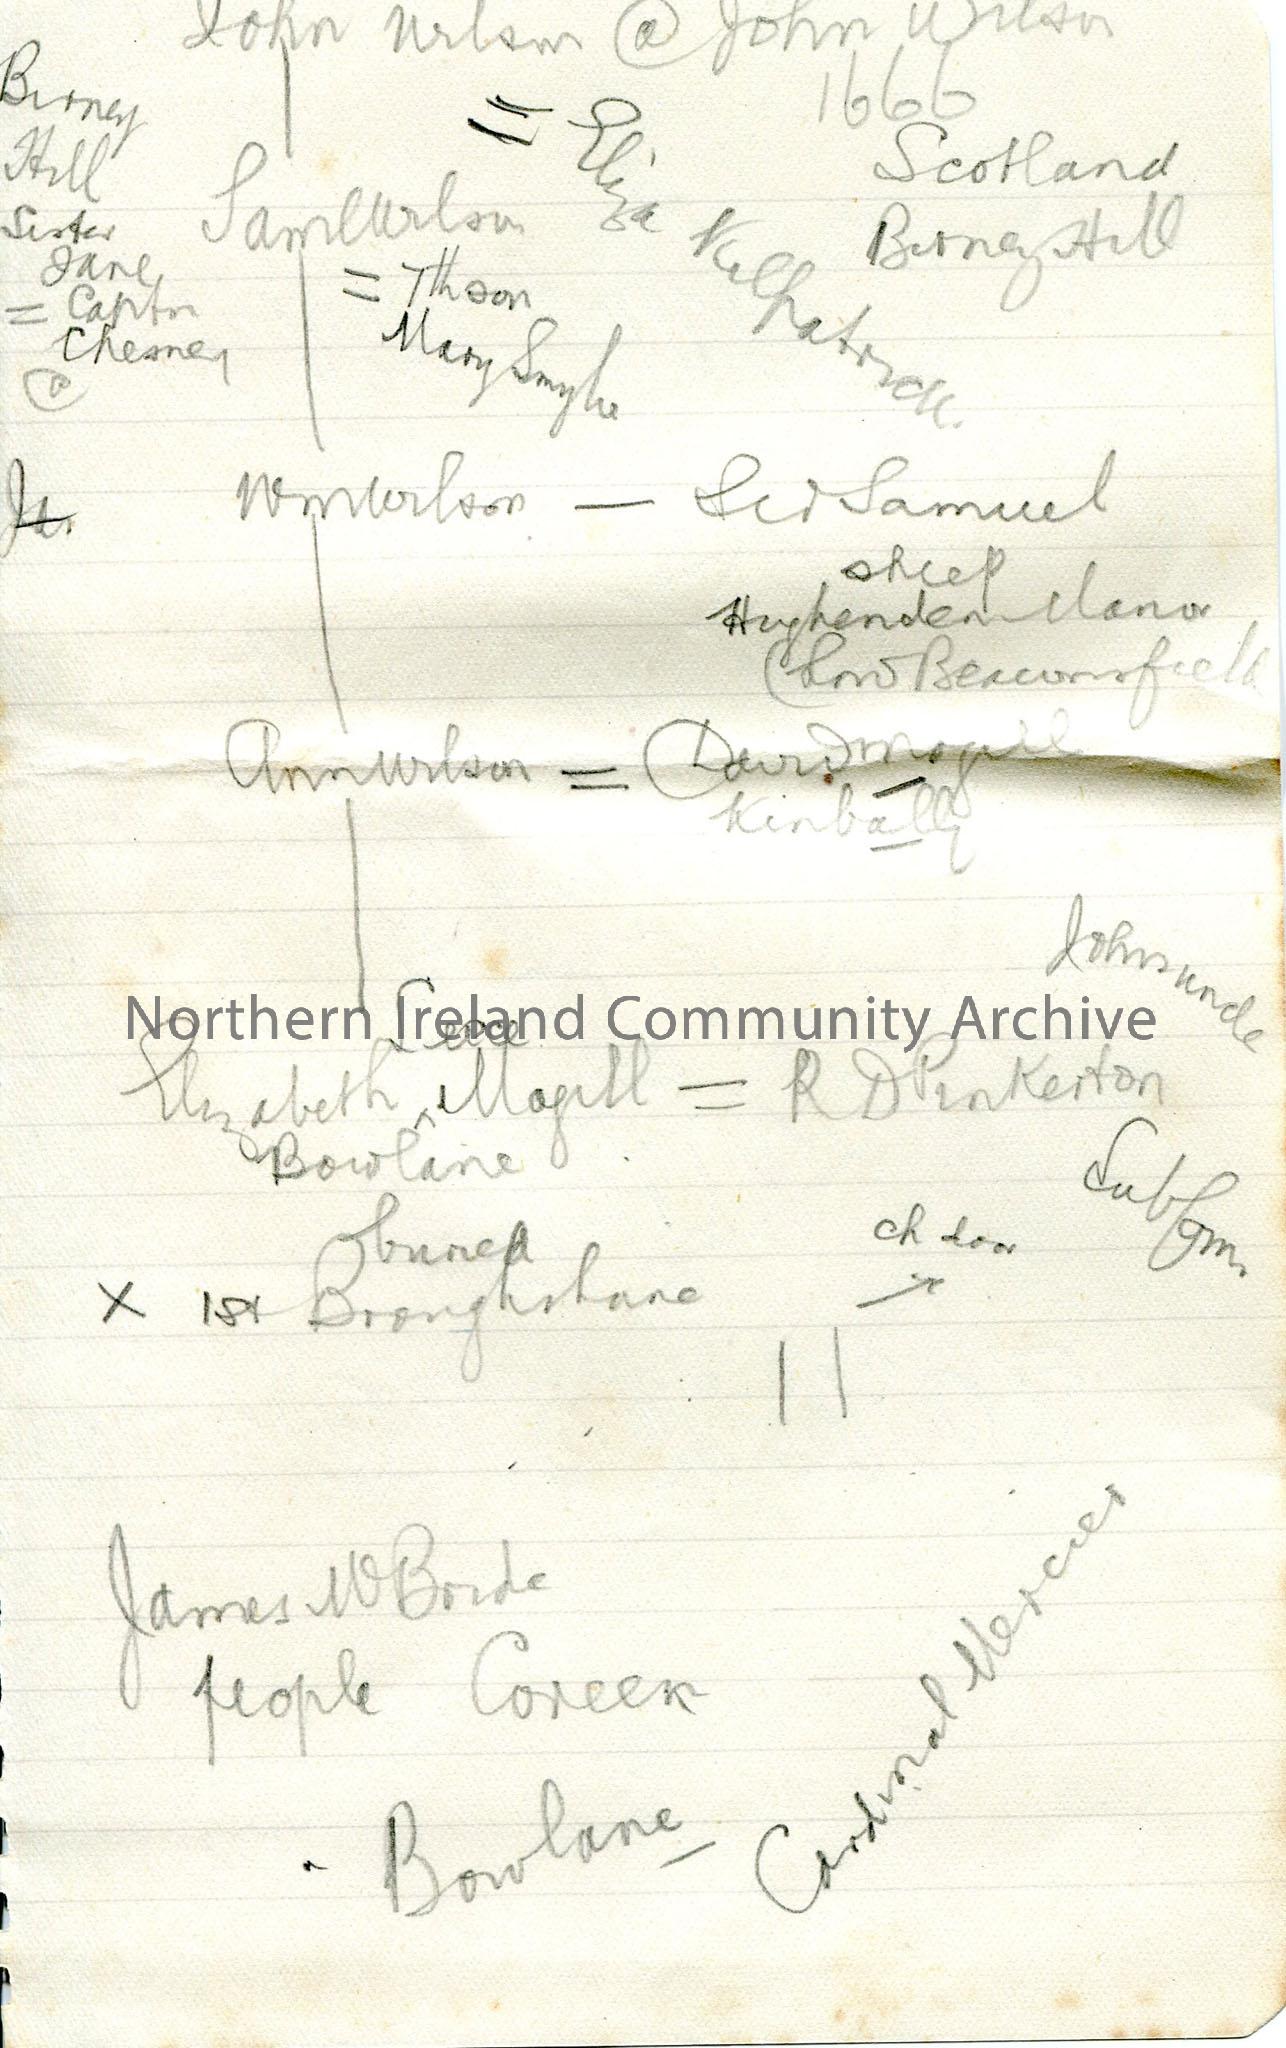 John Wilson @ John Wilson
1666
Birney
Hill
Sister
Jane
= Captn
Chesney
@
= Eliza Kilpatrick.
Scotland
Birney Hill
Saml Wilson
= 7th son
Mary Smythe
Wm Wilson — Sir Samuel
sheep
Hughenden Manor
(Lord Beaconsfield
Ann Wilson = David Magill
Kinbally
Johns uncle
Northern Ireland Community Archive
Elizabeth Magill = R D Pinkerton
Bowlane
buried
X 1st Broughshane
ch door
11
James McBride
people Coreen
Bowlane
Cardinal Mercier